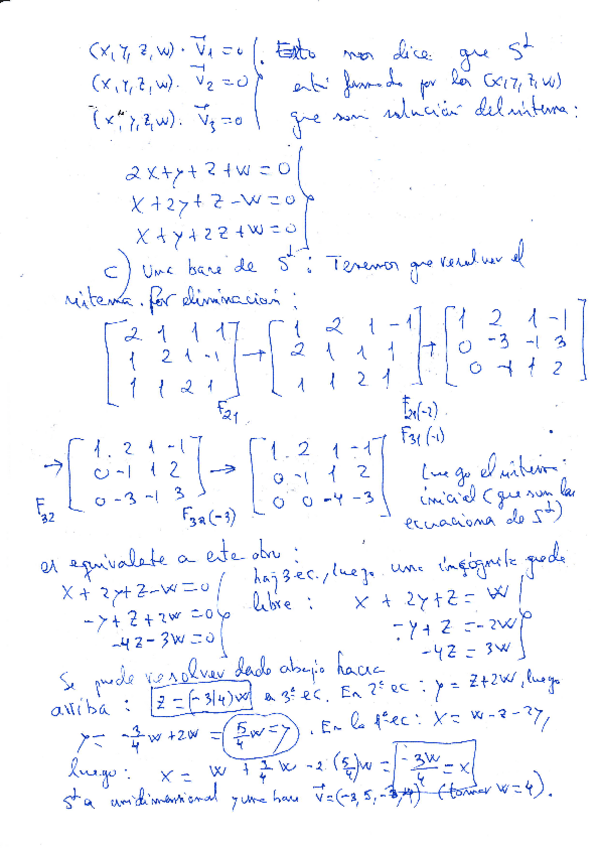 (x,y,z,w) · v⃗1 = 0 } . Esto nos dice que S⊥
(x,y,z,w) · v⃗2 = 0 } está formado por los (x,y,z,w)
(x,y,z,w) · v⃗3 = 0 } que son solución del sistema:
2x+y+z+w=0
x+2y+z-w=0
x+y+2z+w=0
c) Una base de S⊥: Tenemos que resolver el
sistema. Por eliminación:
[2 1 1 1; 1 2 1 -1; 1 1 2 1] → [1 2 1 -1; 2 1 1 1; 1 1 2 1] → [1 2 1 -1; 0 -3 -1 3; 0 -1 1 2]
F21 F21(-2)
F31(-1)
→ [1 2 1 -1; 0 -1 1 2; 0 -3 -1 3] → [1 2 1 -1; 0 -1 1 2; 0 0 -4 -3] Luego el sistema
inicial (que son las
F32 F32(-3) ecuaciones de S⊥)
es equivalente a este otro:
x+2y+z-w=0 } hay 3 ec., luego una incógnita queda
-y+z+2w=0 } libre: x + 2y+z = w
-4z-3w=0 } -y+z = -2w
-4z = 3w
Se puede resolver de abajo hacia
arriba: z=(-3/4)w en 3ª ec. En 2ª ec: y = z+2w, luego
y = -3/4 w + 2w = 5/4 w = y . En la 1ª ec: x = w-z-2y,
luego: x = w + 3/4 w - 2·(5/4)w = -3w/4 = x
S⊥ es unidimensional y una base v⃗=(-3,5,-3,4) (tomar w=4).